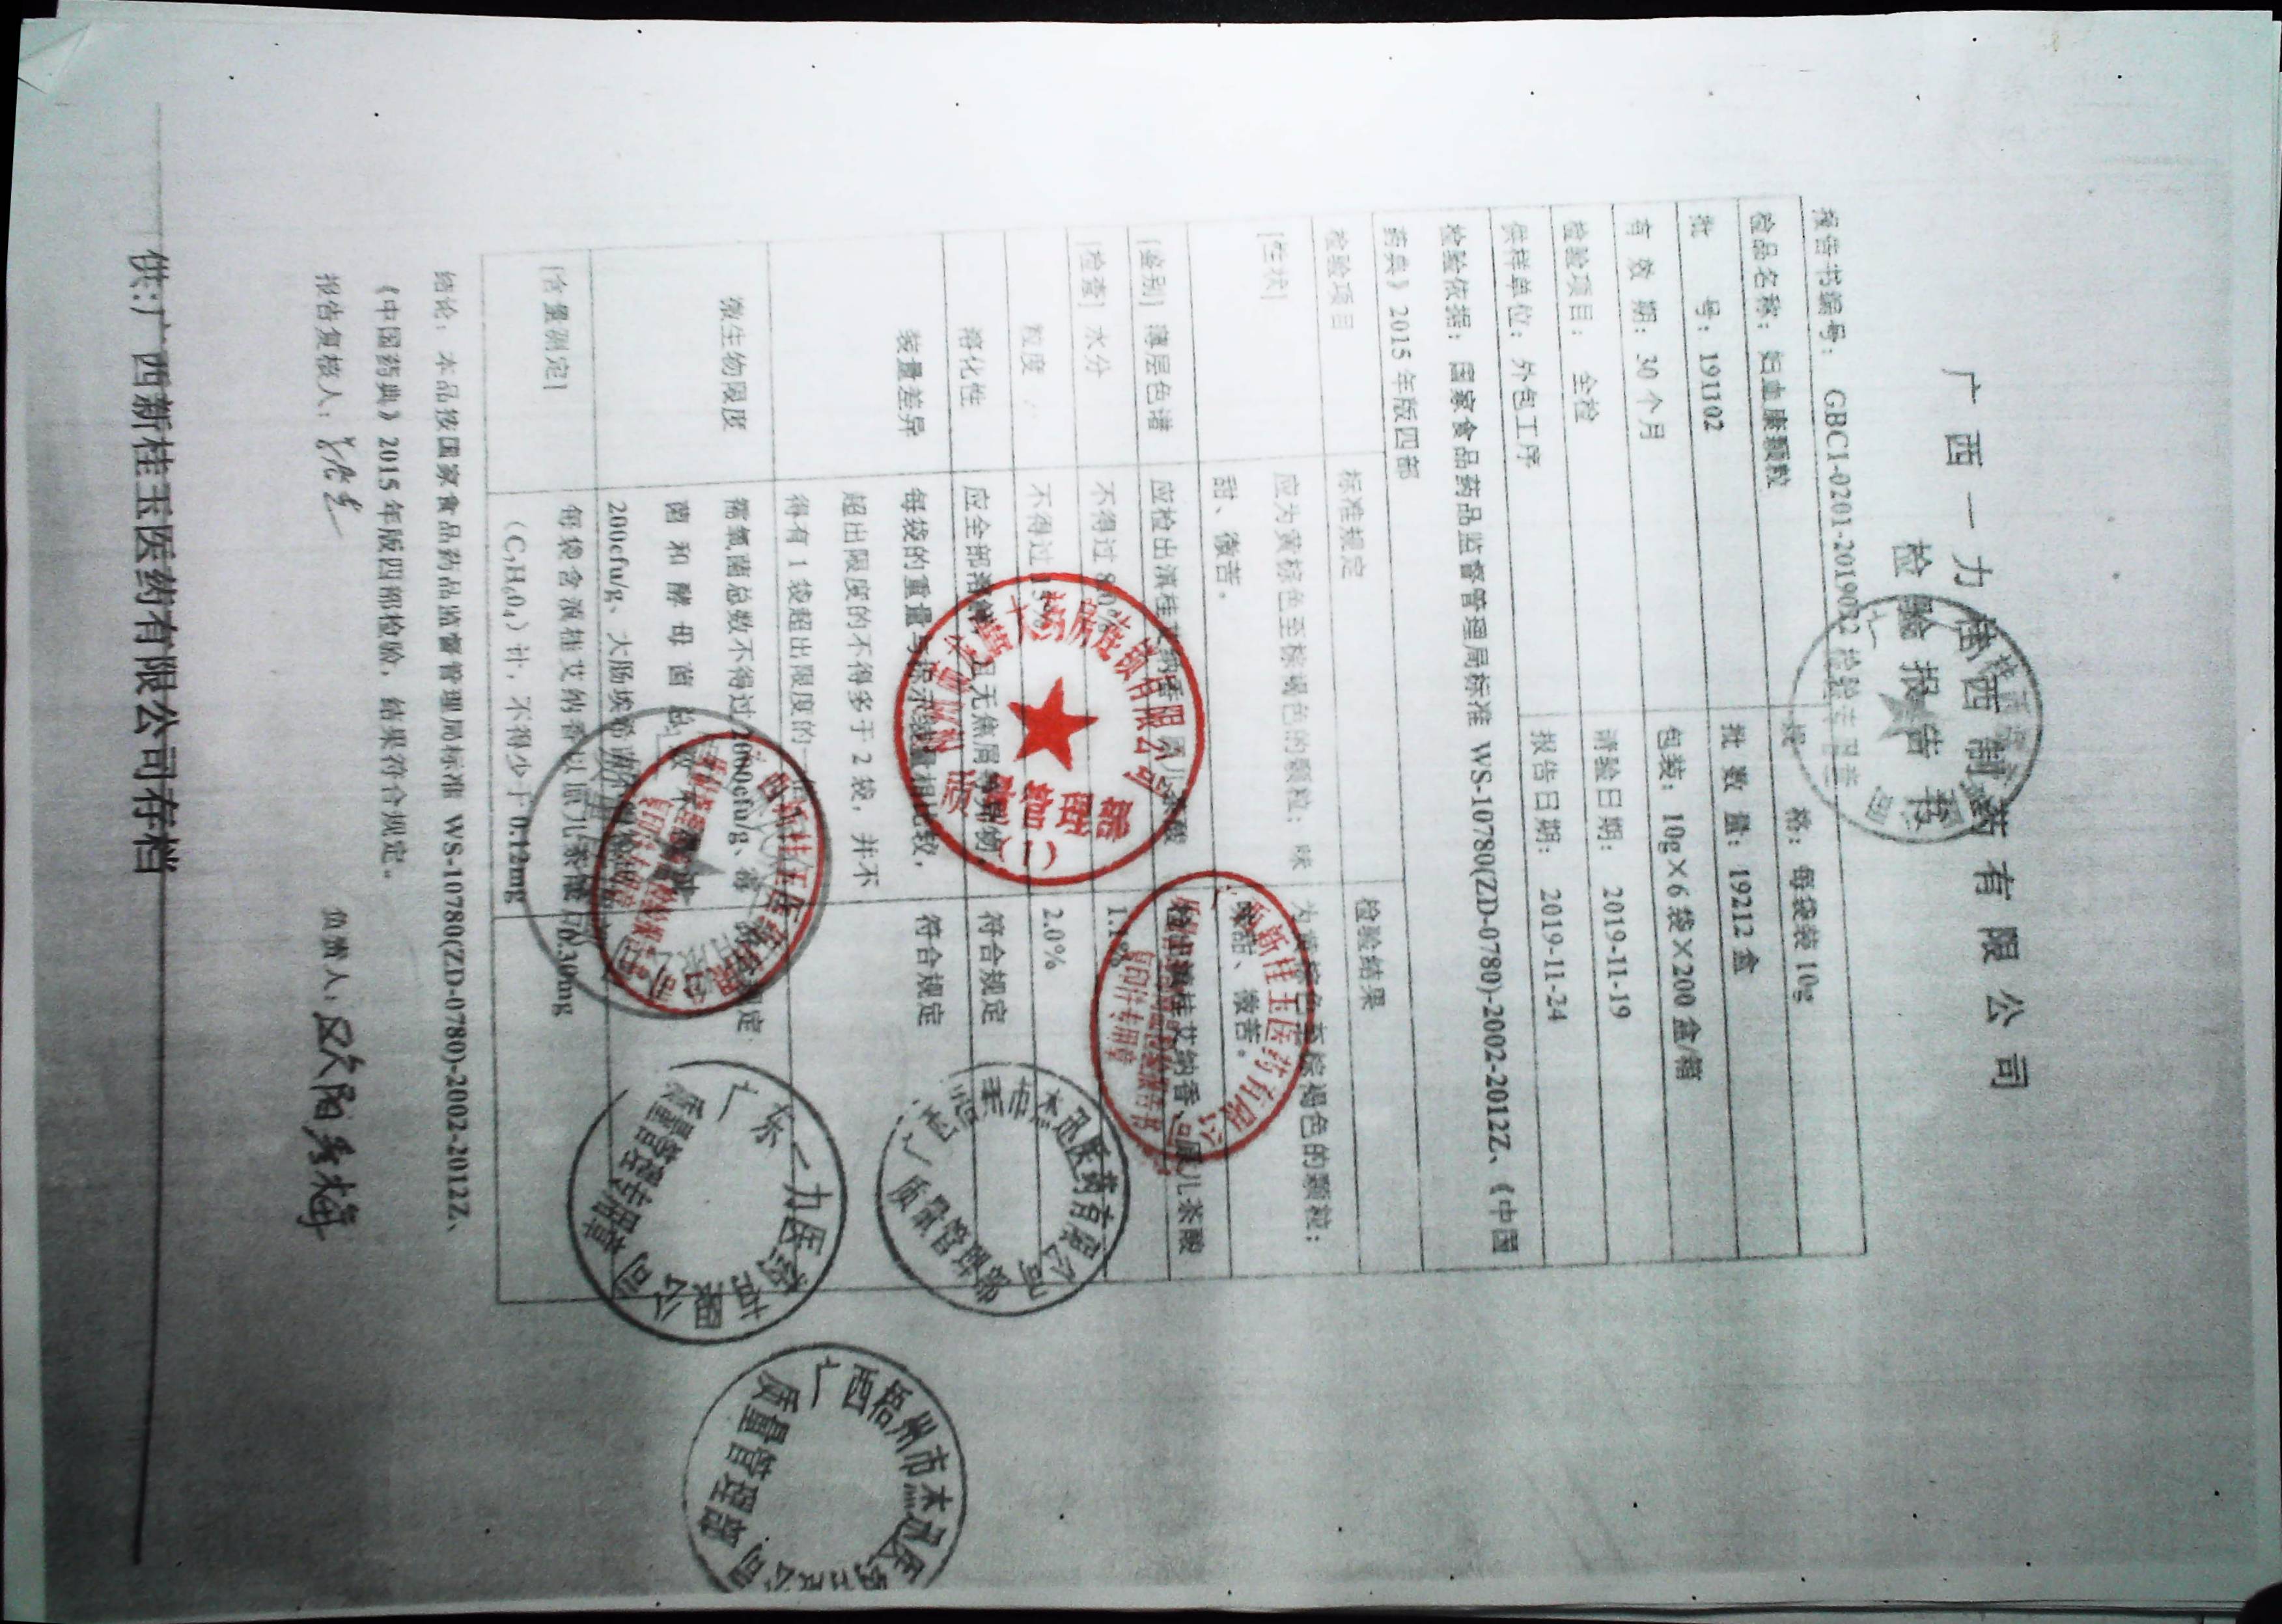 广西一力制药有限公司
检验报告书
报告书编号： GBC1-0201-2019032 检验
检品名称：妇血康颗粒 规 格：每袋装 10g
批 号：191102 批 数 量：19212 盒
有 效 期：30 个月 包装：10g×6 袋×200 盒/箱
检验项目： 全检 请验日期： 2019-11-19
供样单位：外包工序 报告日期： 2019-11-24
检验依据：国家食品药品监督管理局标准 WS-10780(ZD-0780)-2002-2012Z、《中国
药典》2015 年版四部
检验项目 标准规定 检验结果
[性状] 应为黄棕色至棕褐色的颗粒；味
甜、微苦。
为黄棕色至棕褐色的颗粒；
味甜、微苦。
[鉴别] 薄层色谱 应检出滇桂艾纳香、原儿茶酸 检出滇桂艾纳香、原儿茶酸
[检查] 水分 不得过 8.0% 1.1%
粒度 不得过 15% 2.0%
溶化性 应全部溶化，且无焦屑等异物。 符合规定
装量差异 每袋的重量与标示装量相比较， 符合规定
超出限度的不得多于 2 袋，并不
得有 1 袋超出限度的一倍
微生物限度 需氧菌总数不得过 2000cfu/g、霉 符合规定
菌 和 酵 母 菌 总 数
200cfu/g、大肠埃希菌
[含量测定] 每袋含滇桂艾纳香以原儿茶酸 0.30mg
（C₇H₆O₄）计，不得少于 0.12mg
结论：本品按国家食品药品监督管理局标准 WS-10780(ZD-0780)-2002-2012Z、
《中国药典》2015 年版四部检验，结果符合规定。
报告复核人： 负责人：
供:广西新桂玉医药有限公司存档
大药房连锁有限公司
新桂玉医药有限公司
复印件专用章
杰迅医药有限公司
质量管理部
广东一力医药有限公司
质量管理专用章
广西梧州市杰迅医药
公司
质量管理部